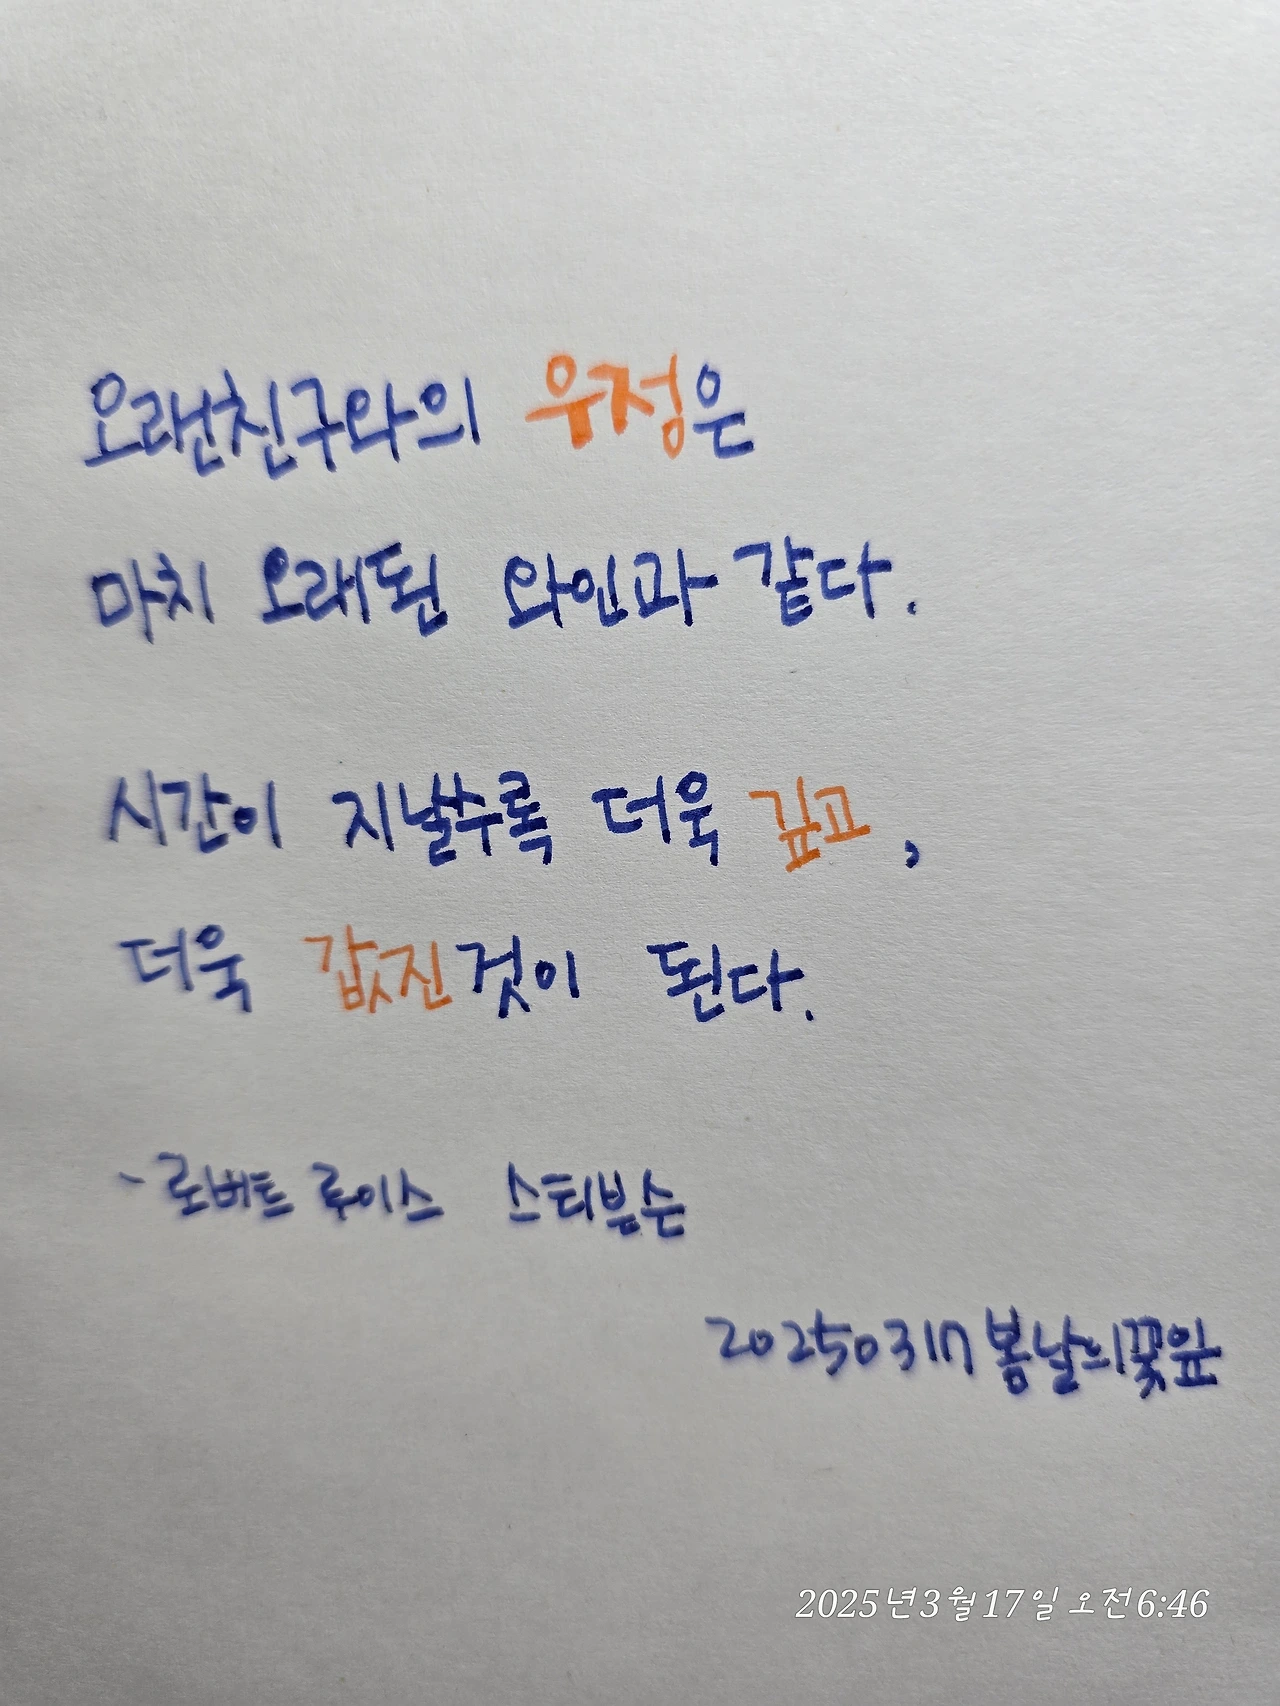 오랜친구와의 우정은
마치 오래된 와인과 같다.
시간이 지날수록 더욱 깊고,
더욱 값진것이 된다.
- 로버트 루이스 스티븐슨
20250317 봄날의꽃잎
2025년3월17일 오전6:46